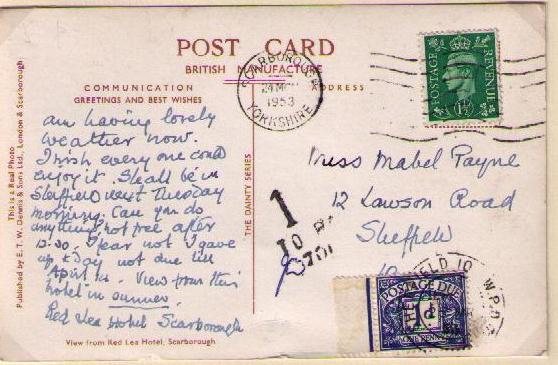 POST CARD
BRITISH MANUFACTURE
COMMUNICATION
ADDRESS
GREETINGS AND BEST WISHES
am having lovely
weather now.
I wish every one could
enjoy it. Shall be in
Sheffield next Tuesday
morning. Can you do
anything not free after
12.30. Fear not I gave
up day not due till
April 1st. View from this
hotel in summer.
Red Lea Hotel Scarborough
View from Red Lea Hotel, Scarborough
This is a Real Photo
Published by E. T. W. Dennis & Sons Ltd., London & Scarborough
THE DAINTY SERIES
SCARBOROUGH
1953
YORKSHIRE
POSTAGE
REVENUE
Miss Mabel Payne
12 Lawson Road
Sheffield
10
1
10
POSTAGE DUE
ONE PENNY